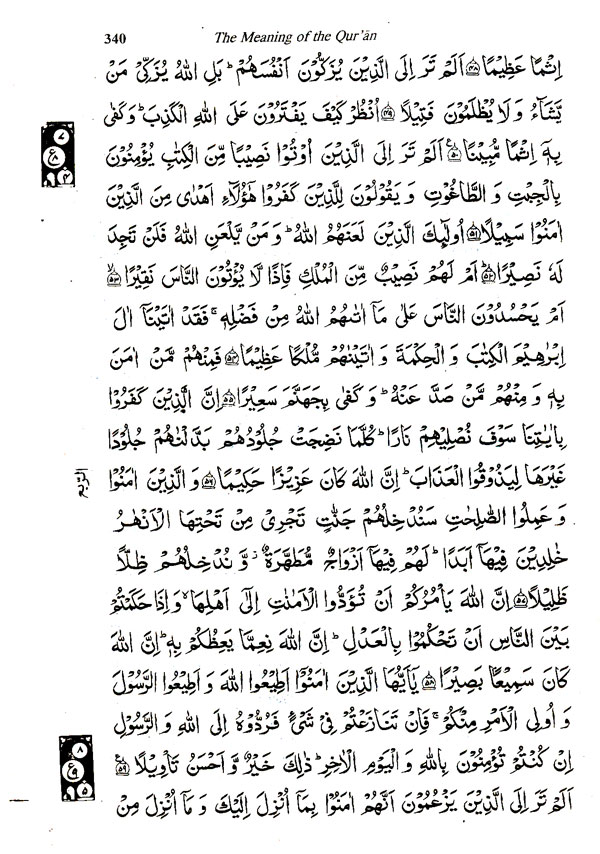 340 The Meaning of the Qur'ān
اِثْمًا عَظِيْمًا ﴿۴۸﴾ اَلَمْ تَرَ اِلَى الَّذِيْنَ يُزَكُّوْنَ اَنْفُسَهُمْ ؕ بَلِ اللّٰهُ يُزَكِّيْ مَنْ
يَّشَآءُ وَ لَا يُظْلَمُوْنَ فَتِيْلًا ﴿۴۹﴾ اُنْظُرْ كَيْفَ يَفْتَرُوْنَ عَلَى اللّٰهِ الْكَذِبَ ؕ وَ كَفٰى
بِهٖۤ اِثْمًا مُّبِيْنًا ﴿۵۰﴾ اَلَمْ تَرَ اِلَى الَّذِيْنَ اُوْتُوْا نَصِيْبًا مِّنَ الْكِتٰبِ يُؤْمِنُوْنَ
بِالْجِبْتِ وَ الطَّاغُوْتِ وَ يَقُوْلُوْنَ لِلَّذِيْنَ كَفَرُوْا هٰۤؤُلَآءِ اَهْدٰى مِنَ الَّذِيْنَ
اٰمَنُوْا سَبِيْلًا ﴿۵۱﴾ اُولٰٓئِكَ الَّذِيْنَ لَعَنَهُمُ اللّٰهُ ؕ وَ مَنْ يَّلْعَنِ اللّٰهُ فَلَنْ تَجِدَ
لَهٗ نَصِيْرًا ﴿۵۲﴾ اَمْ لَهُمْ نَصِيْبٌ مِّنَ الْمُلْكِ فَاِذًا لَّا يُؤْتُوْنَ النَّاسَ نَقِيْرًا ﴿۵۳﴾
اَمْ يَحْسُدُوْنَ النَّاسَ عَلٰى مَاۤ اٰتٰىهُمُ اللّٰهُ مِنْ فَضْلِهٖ ۚ فَقَدْ اٰتَيْنَاۤ اٰلَ
اِبْرٰهِيْمَ الْكِتٰبَ وَ الْحِكْمَةَ وَ اٰتَيْنٰهُمْ مُّلْكًا عَظِيْمًا ﴿۵۴﴾ فَمِنْهُمْ مَّنْ اٰمَنَ
بِهٖ وَ مِنْهُمْ مَّنْ صَدَّ عَنْهُ ؕ وَ كَفٰى بِجَهَنَّمَ سَعِيْرًا ﴿۵۵﴾ اِنَّ الَّذِيْنَ كَفَرُوْا
بِاٰيٰتِنَا سَوْفَ نُصْلِيْهِمْ نَارًا ؕ كُلَّمَا نَضِجَتْ جُلُوْدُهُمْ بَدَّلْنٰهُمْ جُلُوْدًا
الربع
غَيْرَهَا لِيَذُوْقُوا الْعَذَابَ ؕ اِنَّ اللّٰهَ كَانَ عَزِيْزًا حَكِيْمًا ﴿۵۶﴾ وَ الَّذِيْنَ اٰمَنُوْا
وَ عَمِلُوا الصّٰلِحٰتِ سَنُدْخِلُهُمْ جَنّٰتٍ تَجْرِيْ مِنْ تَحْتِهَا الْاَنْهٰرُ
خٰلِدِيْنَ فِيْهَاۤ اَبَدًا ؕ لَهُمْ فِيْهَاۤ اَزْوَاجٌ مُّطَهَّرَةٌ ۫ وَّ نُدْخِلُهُمْ ظِلًّا
ظَلِيْلًا ﴿۵۷﴾ اِنَّ اللّٰهَ يَاْمُرُكُمْ اَنْ تُؤَدُّوا الْاَمٰنٰتِ اِلٰۤى اَهْلِهَا ۙ وَ اِذَا حَكَمْتُمْ
بَيْنَ النَّاسِ اَنْ تَحْكُمُوْا بِالْعَدْلِ ؕ اِنَّ اللّٰهَ نِعِمَّا يَعِظُكُمْ بِهٖ ؕ اِنَّ اللّٰهَ
كَانَ سَمِيْعًۢا بَصِيْرًا ﴿۵۸﴾ يٰۤاَيُّهَا الَّذِيْنَ اٰمَنُوْۤا اَطِيْعُوا اللّٰهَ وَ اَطِيْعُوا الرَّسُوْلَ
وَ اُولِى الْاَمْرِ مِنْكُمْ ۚ فَاِنْ تَنَازَعْتُمْ فِيْ شَيْءٍ فَرُدُّوْهُ اِلَى اللّٰهِ وَ الرَّسُوْلِ
اِنْ كُنْتُمْ تُؤْمِنُوْنَ بِاللّٰهِ وَ الْيَوْمِ الْاٰخِرِ ؕ ذٰلِكَ خَيْرٌ وَّ اَحْسَنُ تَاْوِيْلًا ﴿۵۹﴾
اَلَمْ تَرَ اِلَى الَّذِيْنَ يَزْعُمُوْنَ اَنَّهُمْ اٰمَنُوْا بِمَاۤ اُنْزِلَ اِلَيْكَ وَ مَاۤ اُنْزِلَ مِنْ